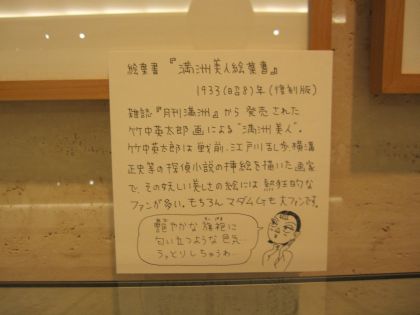 絵葉書『満洲美人絵葉書』
1933(昭8)年(復刻版)
雑誌『月刊満洲』から発売された
竹中英太郎画による"満洲美人"。
竹中英太郎は戦前、江戸川乱歩、横溝
正史等の探偵小説の挿絵を描いた画家
で、その妖しい美しさの絵には熱狂的な
ファンが多い。もちろんマダムGも大ファンです。
艶やかな旗袍に
匂い立つような色気…
うっとりしちゃうわ…